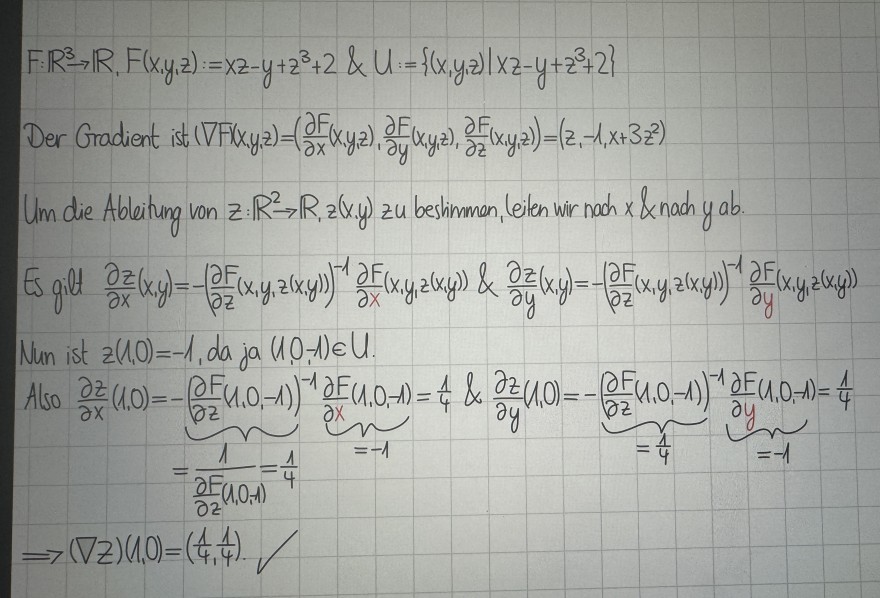 F:ℝ³→ℝ, F(x,y,z):=xz-y+z³+2 & U:={(x,y,z)|xz-y+z³+2}
Der Gradient ist (∇F)(x,y,z)=(∂F/∂x(x,y,z), ∂F/∂y(x,y,z), ∂F/∂z(x,y,z))=(z,-1,x+3z²)
Um die Ableitung von z:ℝ²→ℝ, z(x,y) zu bestimmen, leiten wir nach x & nach y ab.
Es gilt ∂z/∂x(x,y)=-(∂F/∂z(x,y,z(x,y)))⁻¹ ∂F/∂x(x,y,z(x,y)) & ∂z/∂y(x,y)=-(∂F/∂z(x,y,z(x,y)))⁻¹ ∂F/∂y(x,y,z(x,y))
Nun ist z(1,0)=-1, da ja (1,0,-1)∈U.
Also ∂z/∂x(1,0)=-(∂F/∂z(1,0,-1))⁻¹ ∂F/∂x(1,0,-1)=1/4 & ∂z/∂y(1,0)=-(∂F/∂z(1,0,-1))⁻¹ ∂F/∂y(1,0,-1)=1/4
=1/(∂F/∂z(1,0,-1))=1/4 =-1 =1/4 =-1
⟹(∇z)(1,0)=(1/4,1/4). ✓